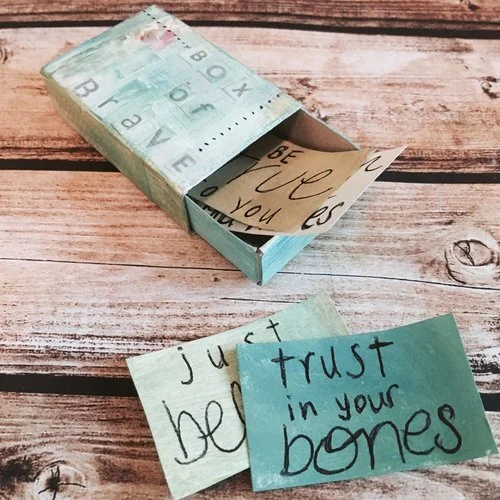 BOX
of
BRAVE
BE
TRUE
YOU
es
just
be
trust
in your
bones